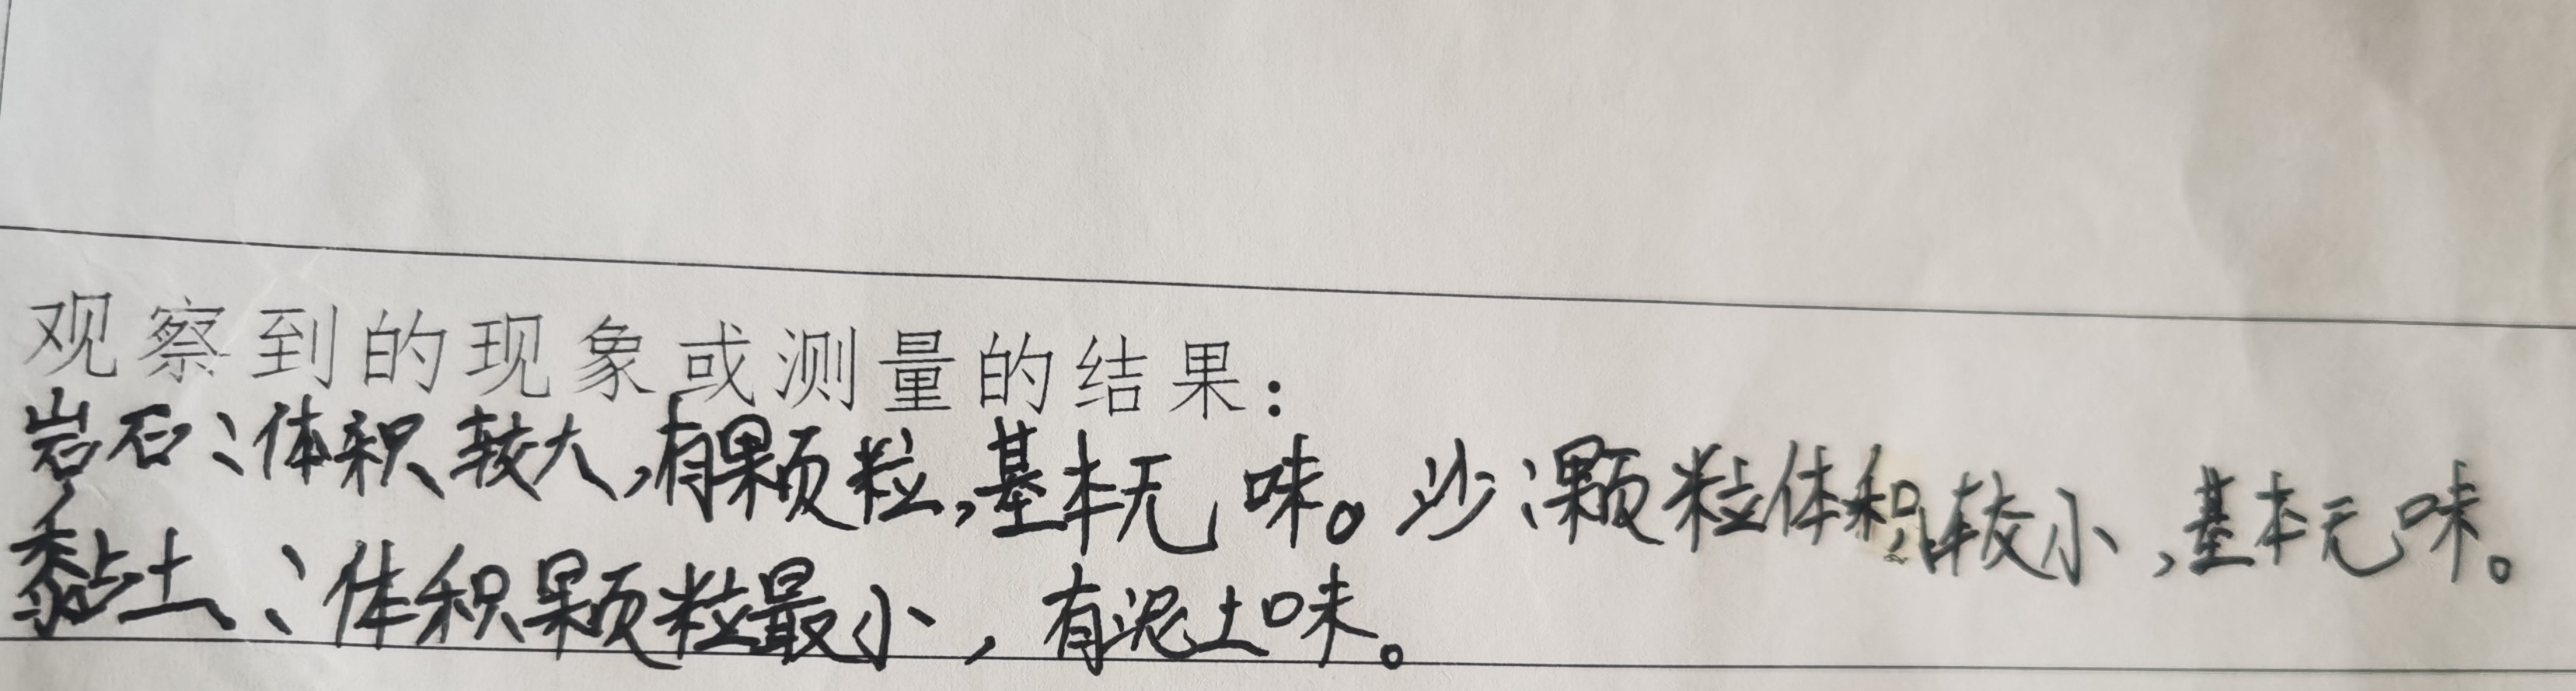 观察到的现象或测量的结果：
岩石：体积较大，有颗粒，基本无味。沙：颗粒体积较小，基本无味。
黏土：体积颗粒最小，有泥土味。